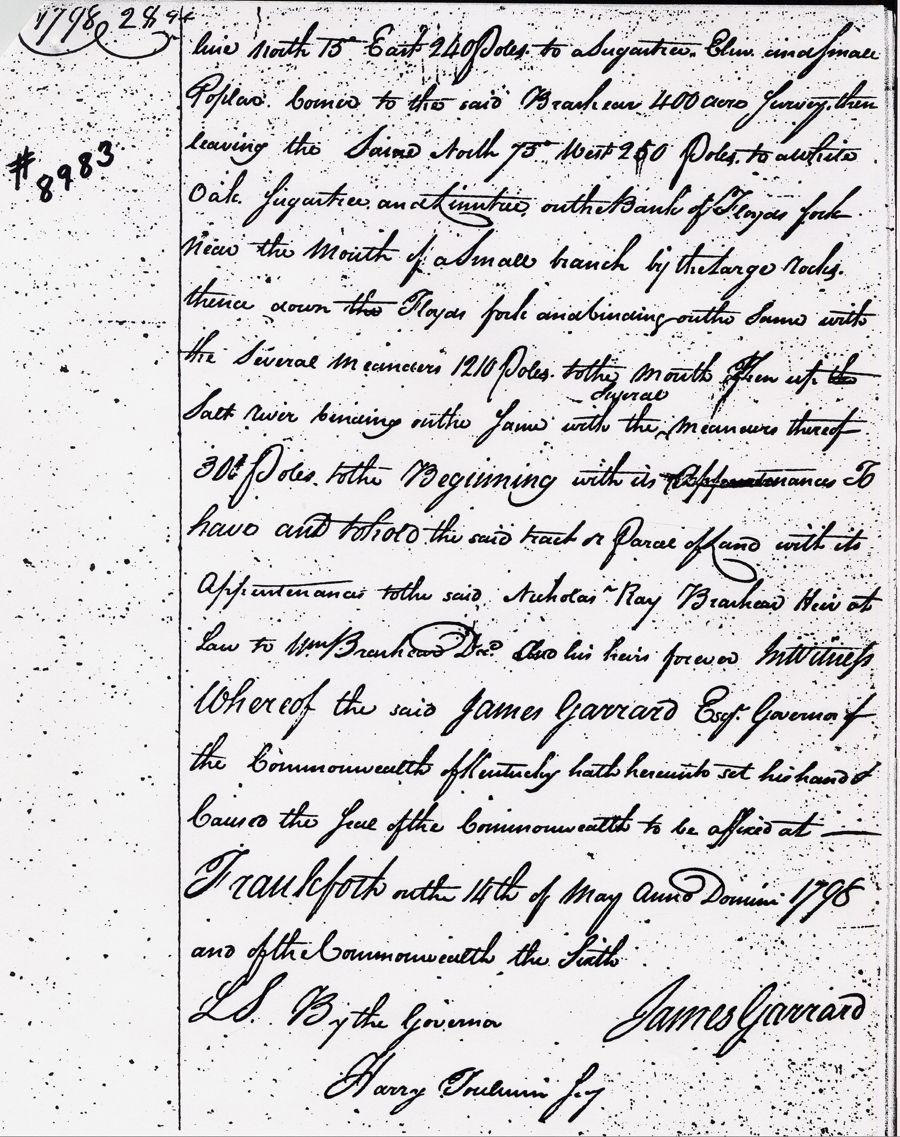 1798
# 8983
line North 15° East 240 Poles to a Sugartree. Elm and Small
Poplar. Corner to the said Brashear 400 acre Survey, then
leaving the Same North 75° West 250 Poles, to a White
Oak. Sugartree and Linntree, on the Bank of Floyds fork
Near the Mouth of a Small branch by the Large rocks.
thence down the Floyds fork and binding on the Same with
the Several meanders 1210 Poles. to the mouth Then up the
several
Salt river binding on the Same with the meanders thereof
30 Poles. to the Beginning with its Appurtenances To
have and to hold the said tract or Parcel of Land with its
Appurtenances to the said Nicholas Ray Brashear Heir at
Law to Wm Brashear Decd. And his heirs forever In Witness
Whereof the said James Garrard Esqr. Governor of
the Commonwealth of Kentucky hath hereunto set his hand &
Caused the Seal of the Commonwealth to be affixed at
Frankfort on the 14th of May Anno Domini 1798
and of the Commonwealth the Sixth
LS. By the Governor James Garrard
Harry Toulmin Secy